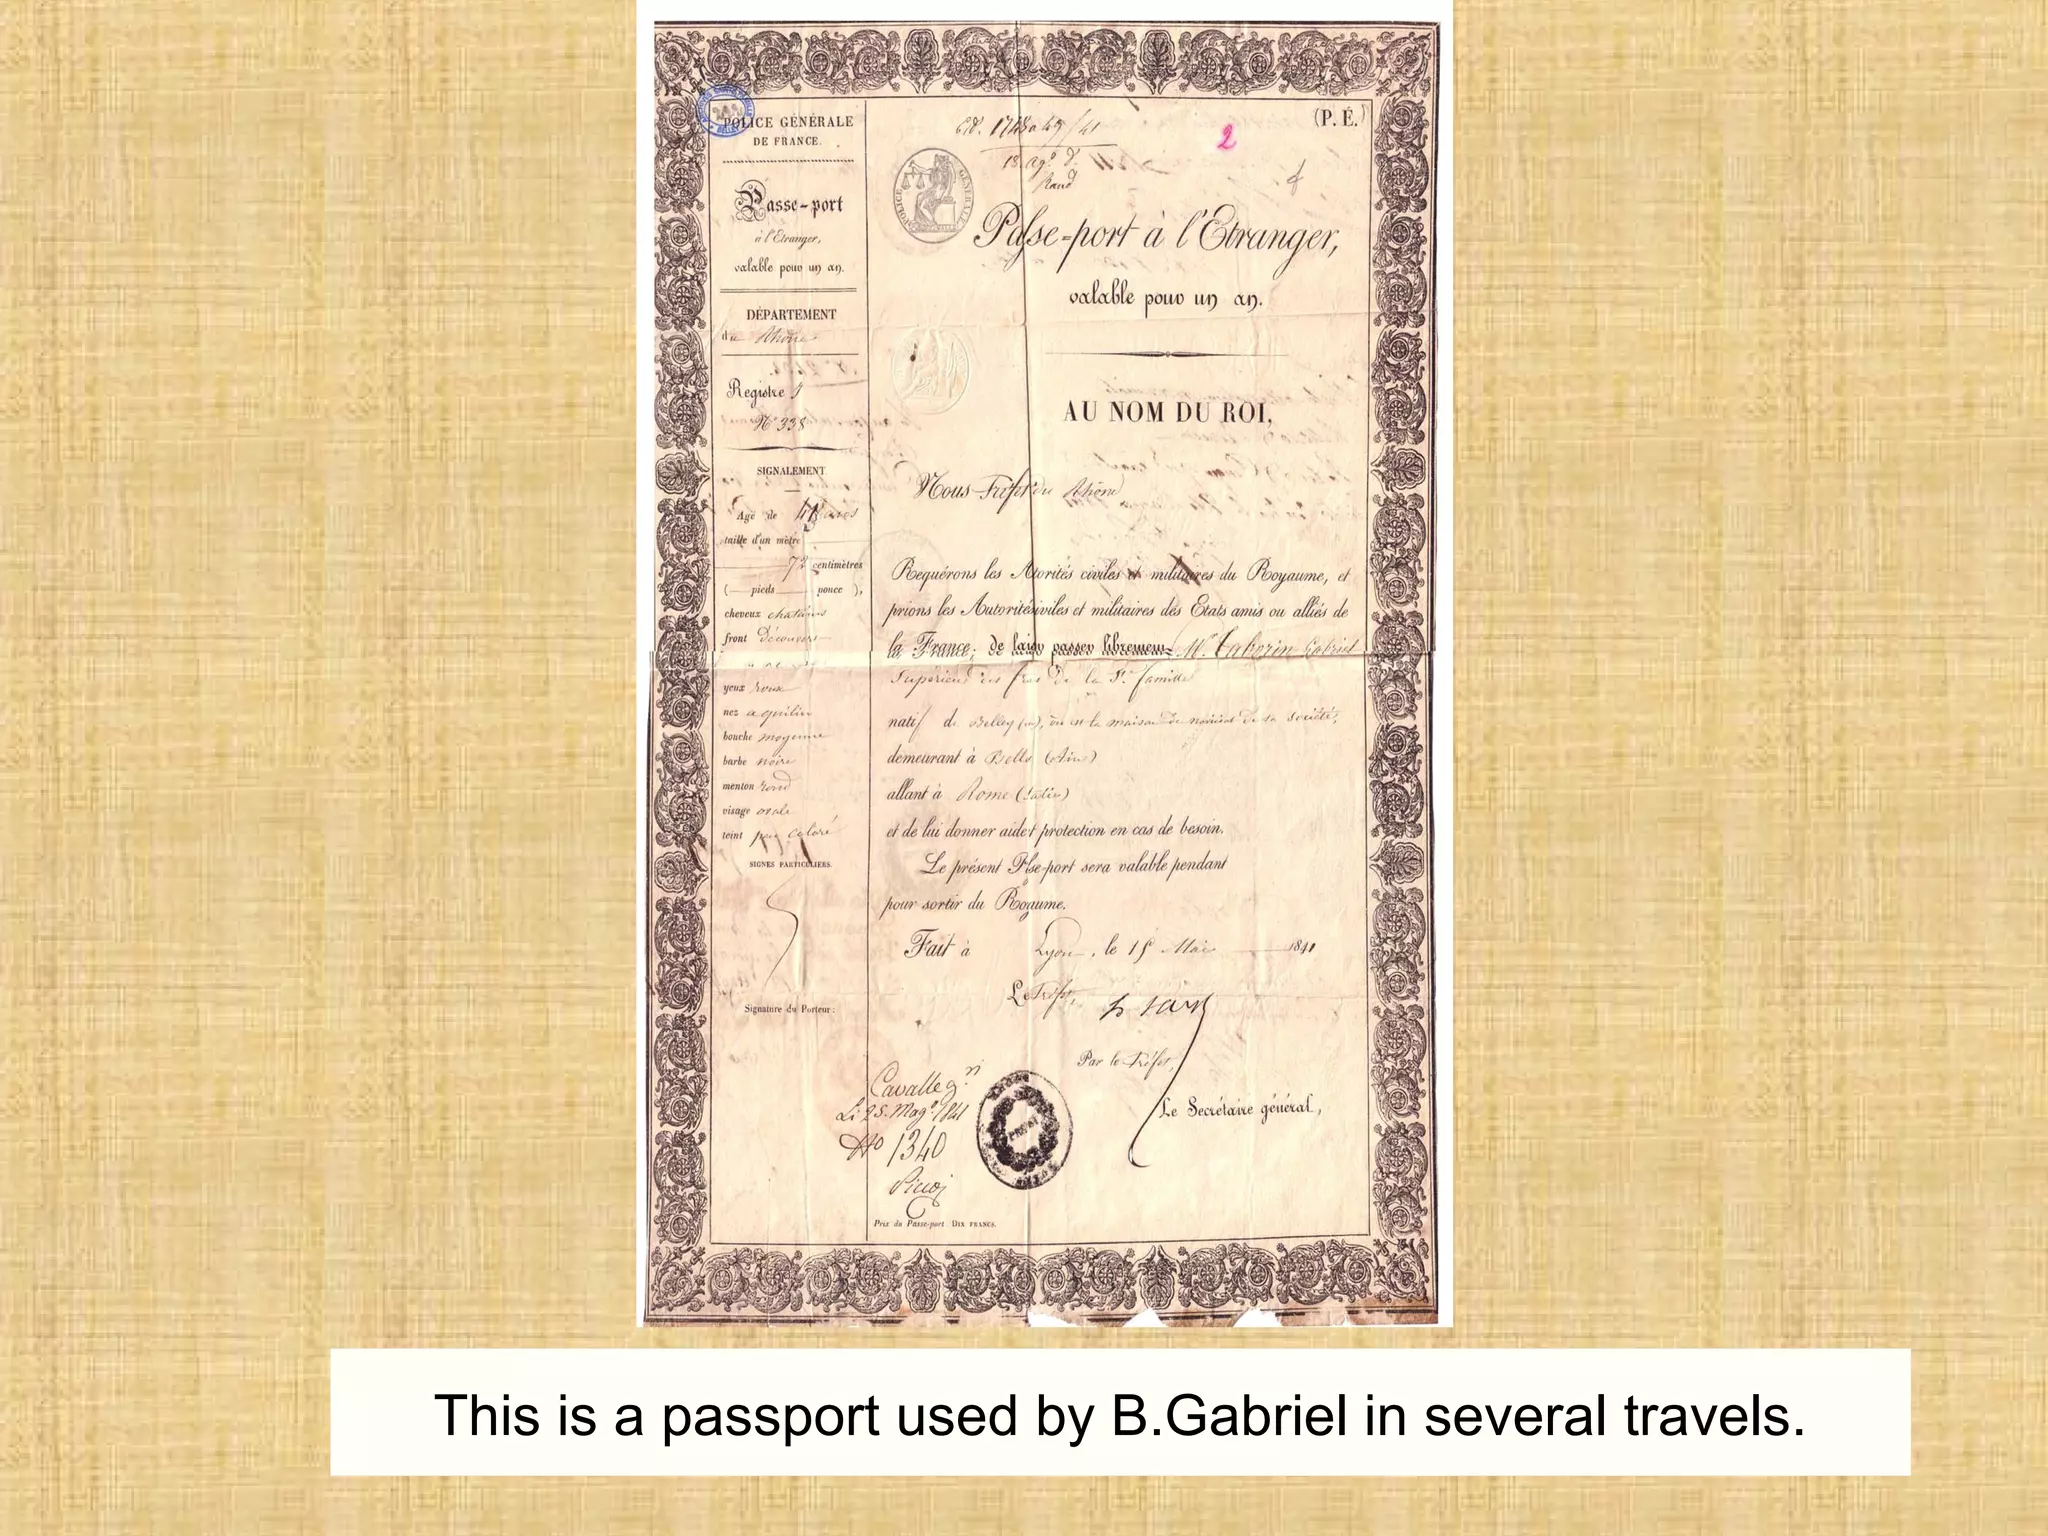 POLICE GÉNÉRALE
DE FRANCE.
Passe-port
à l'Etranger,
valable pour un an.
DÉPARTEMENT
du Rhône
Registre
N° 338
SIGNALEMENT
Age de ans
taille d'un mètre
72 centimètres
( pieds pouce ),
cheveux chatains
front Découvert
yeux roux
nez aquilin
bouche moyenne
barbe noire
menton rond
visage ovale
teint peu coloré
SIGNES PARTICULIERS.
Signature du Porteur :
(P. É.)
2
POLICE GÉNÉRALE
Passe-port à l'Etranger,
valable pour un an.
AU NOM DU ROI,
Nous Préfet du Rhône
Requérons les Atorités civiles et militaires du Royaume, et
prions les Autoritésiviles et militaires des Etats amis ou alliés de
la France, de laisser passer librement Mr. Taborin Gabriel
Supérieur des de la Ste. famille
natif de Belley où est la maison de noviciat de sa société,
demeurant à Belley (Ain)
allant à Rome
et de lui donner aide et protection en cas de besoin.
Le présent Psse-port sera valable pendant
pour sortir du Royaume.
Fait à Lyon, le 15 Mai 1841
Le Préfet,
Par le Préfet,
Le Secrétaire général,
Cavalle
Li 25. Mag° 1841
1340
Prix du Passe-port DIX FRANCS.
This is a passport used by B.Gabriel in several travels.